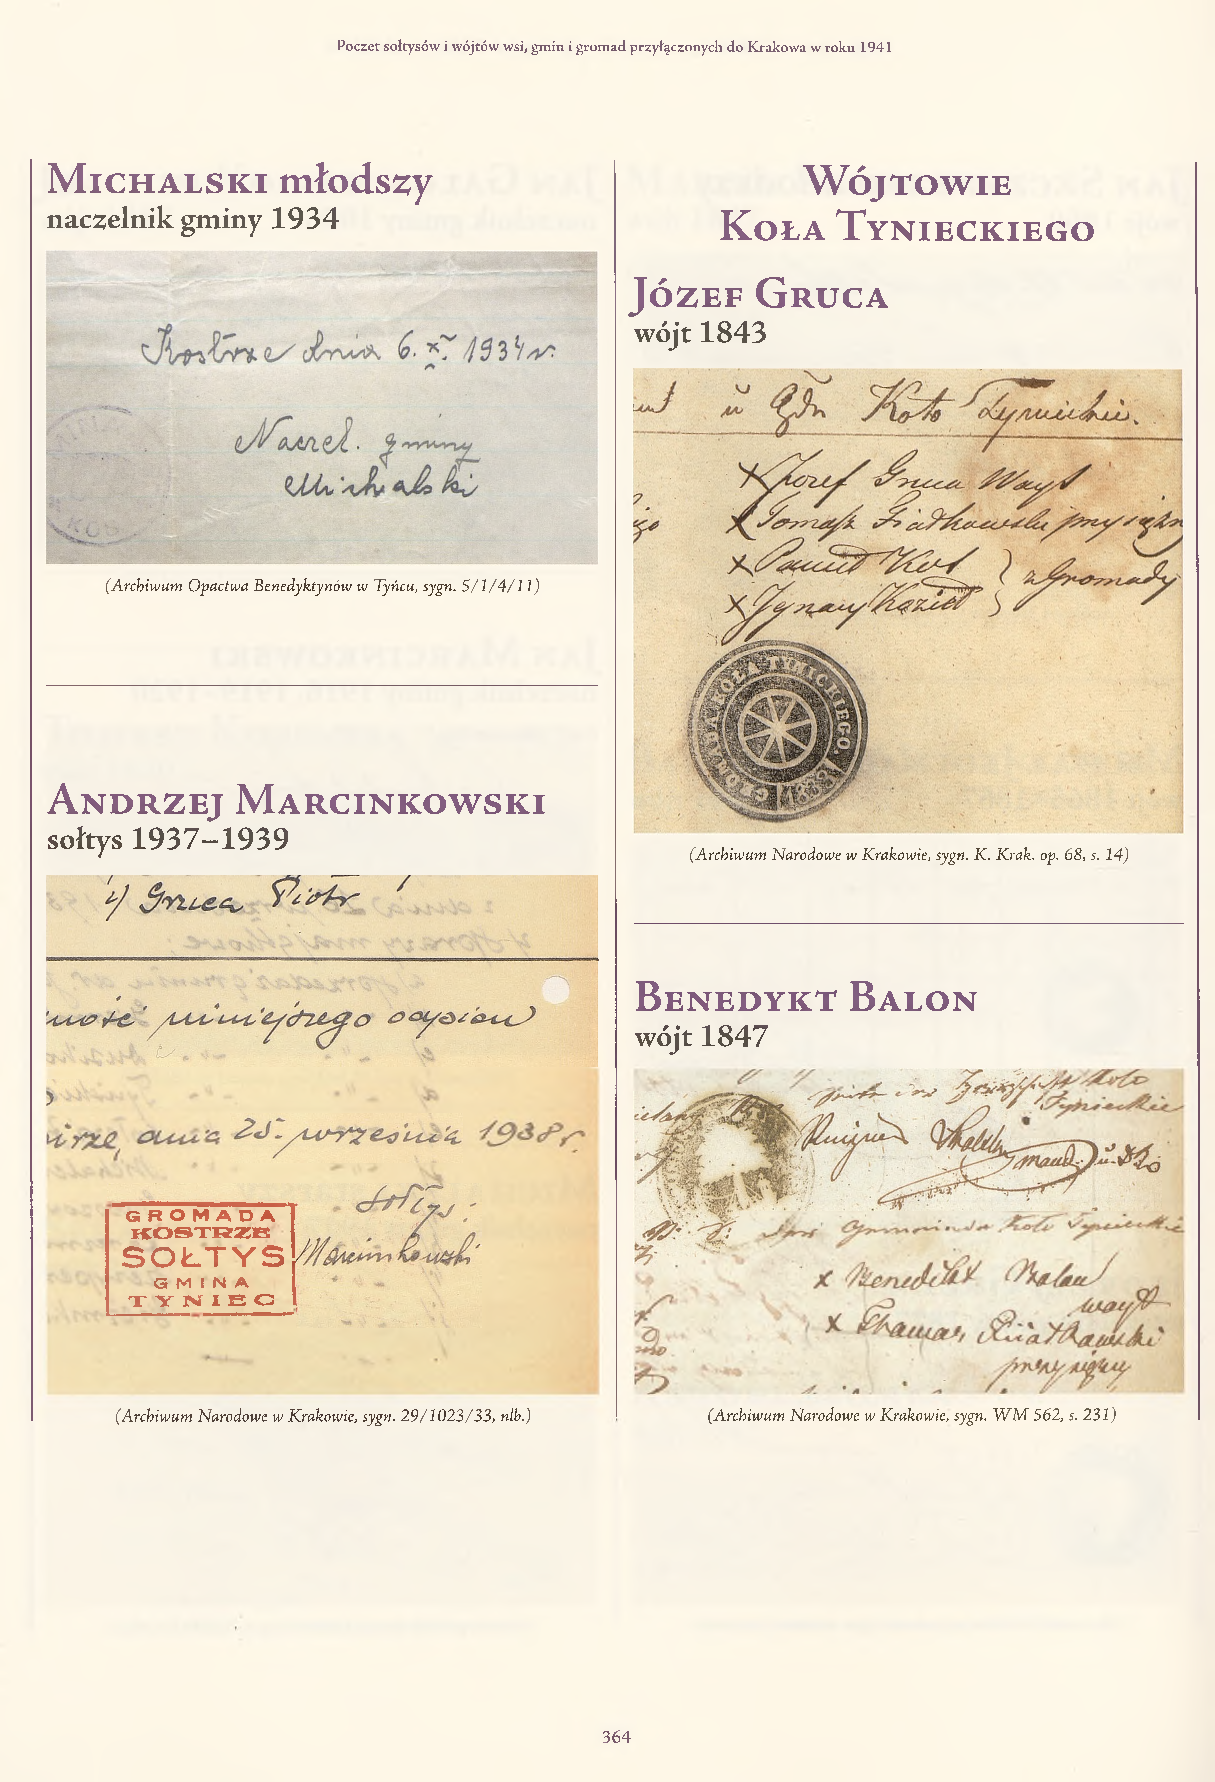 Poczet sołtysów i wójtów wsi, gmin i gromad przyłączonych do Krakowa w roku 1941
Michalski młodszy
naczelnik gminy 1934
Kostrze dnia 6. X. 1934 r.
Naczel. gminy
Michalski
(Archiwum Opactwa Benedyktynów w Tyńcu, sygn. 5/1/4/11)
Andrzej Marcinkowski
sołtys 1937–1939
Gruca Piotr
ność niniejszego odpisu
dnia 25. września 1938 r.
Sołtys:
Marcinkowski
GROMADA
KOSTRZE
SOŁTYS
GMINA
TYNIEC
(Archiwum Narodowe w Krakowie, sygn. 29/1023/33, nlb.)
Wójtowie
Koła Tynieckiego
Józef Gruca
wójt 1843
Koło Tynieckie.
x Jozef Gruca Wayt
x Tomasz
x Paweł Kot
x Kozieł
z Gromady
GROMADA KOŁA TYNICKIEGO. 1837
(Archiwum Narodowe w Krakowie, sygn. K. Krak. op. 68, s. 14)
Benedykt Balon
wójt 1847
(Archiwum Narodowe w Krakowie, sygn. WM 562, s. 231)
Koło
Tynieckie
Koło Tynieckie
x Benedikt Balon
wayt
x Thomas
364